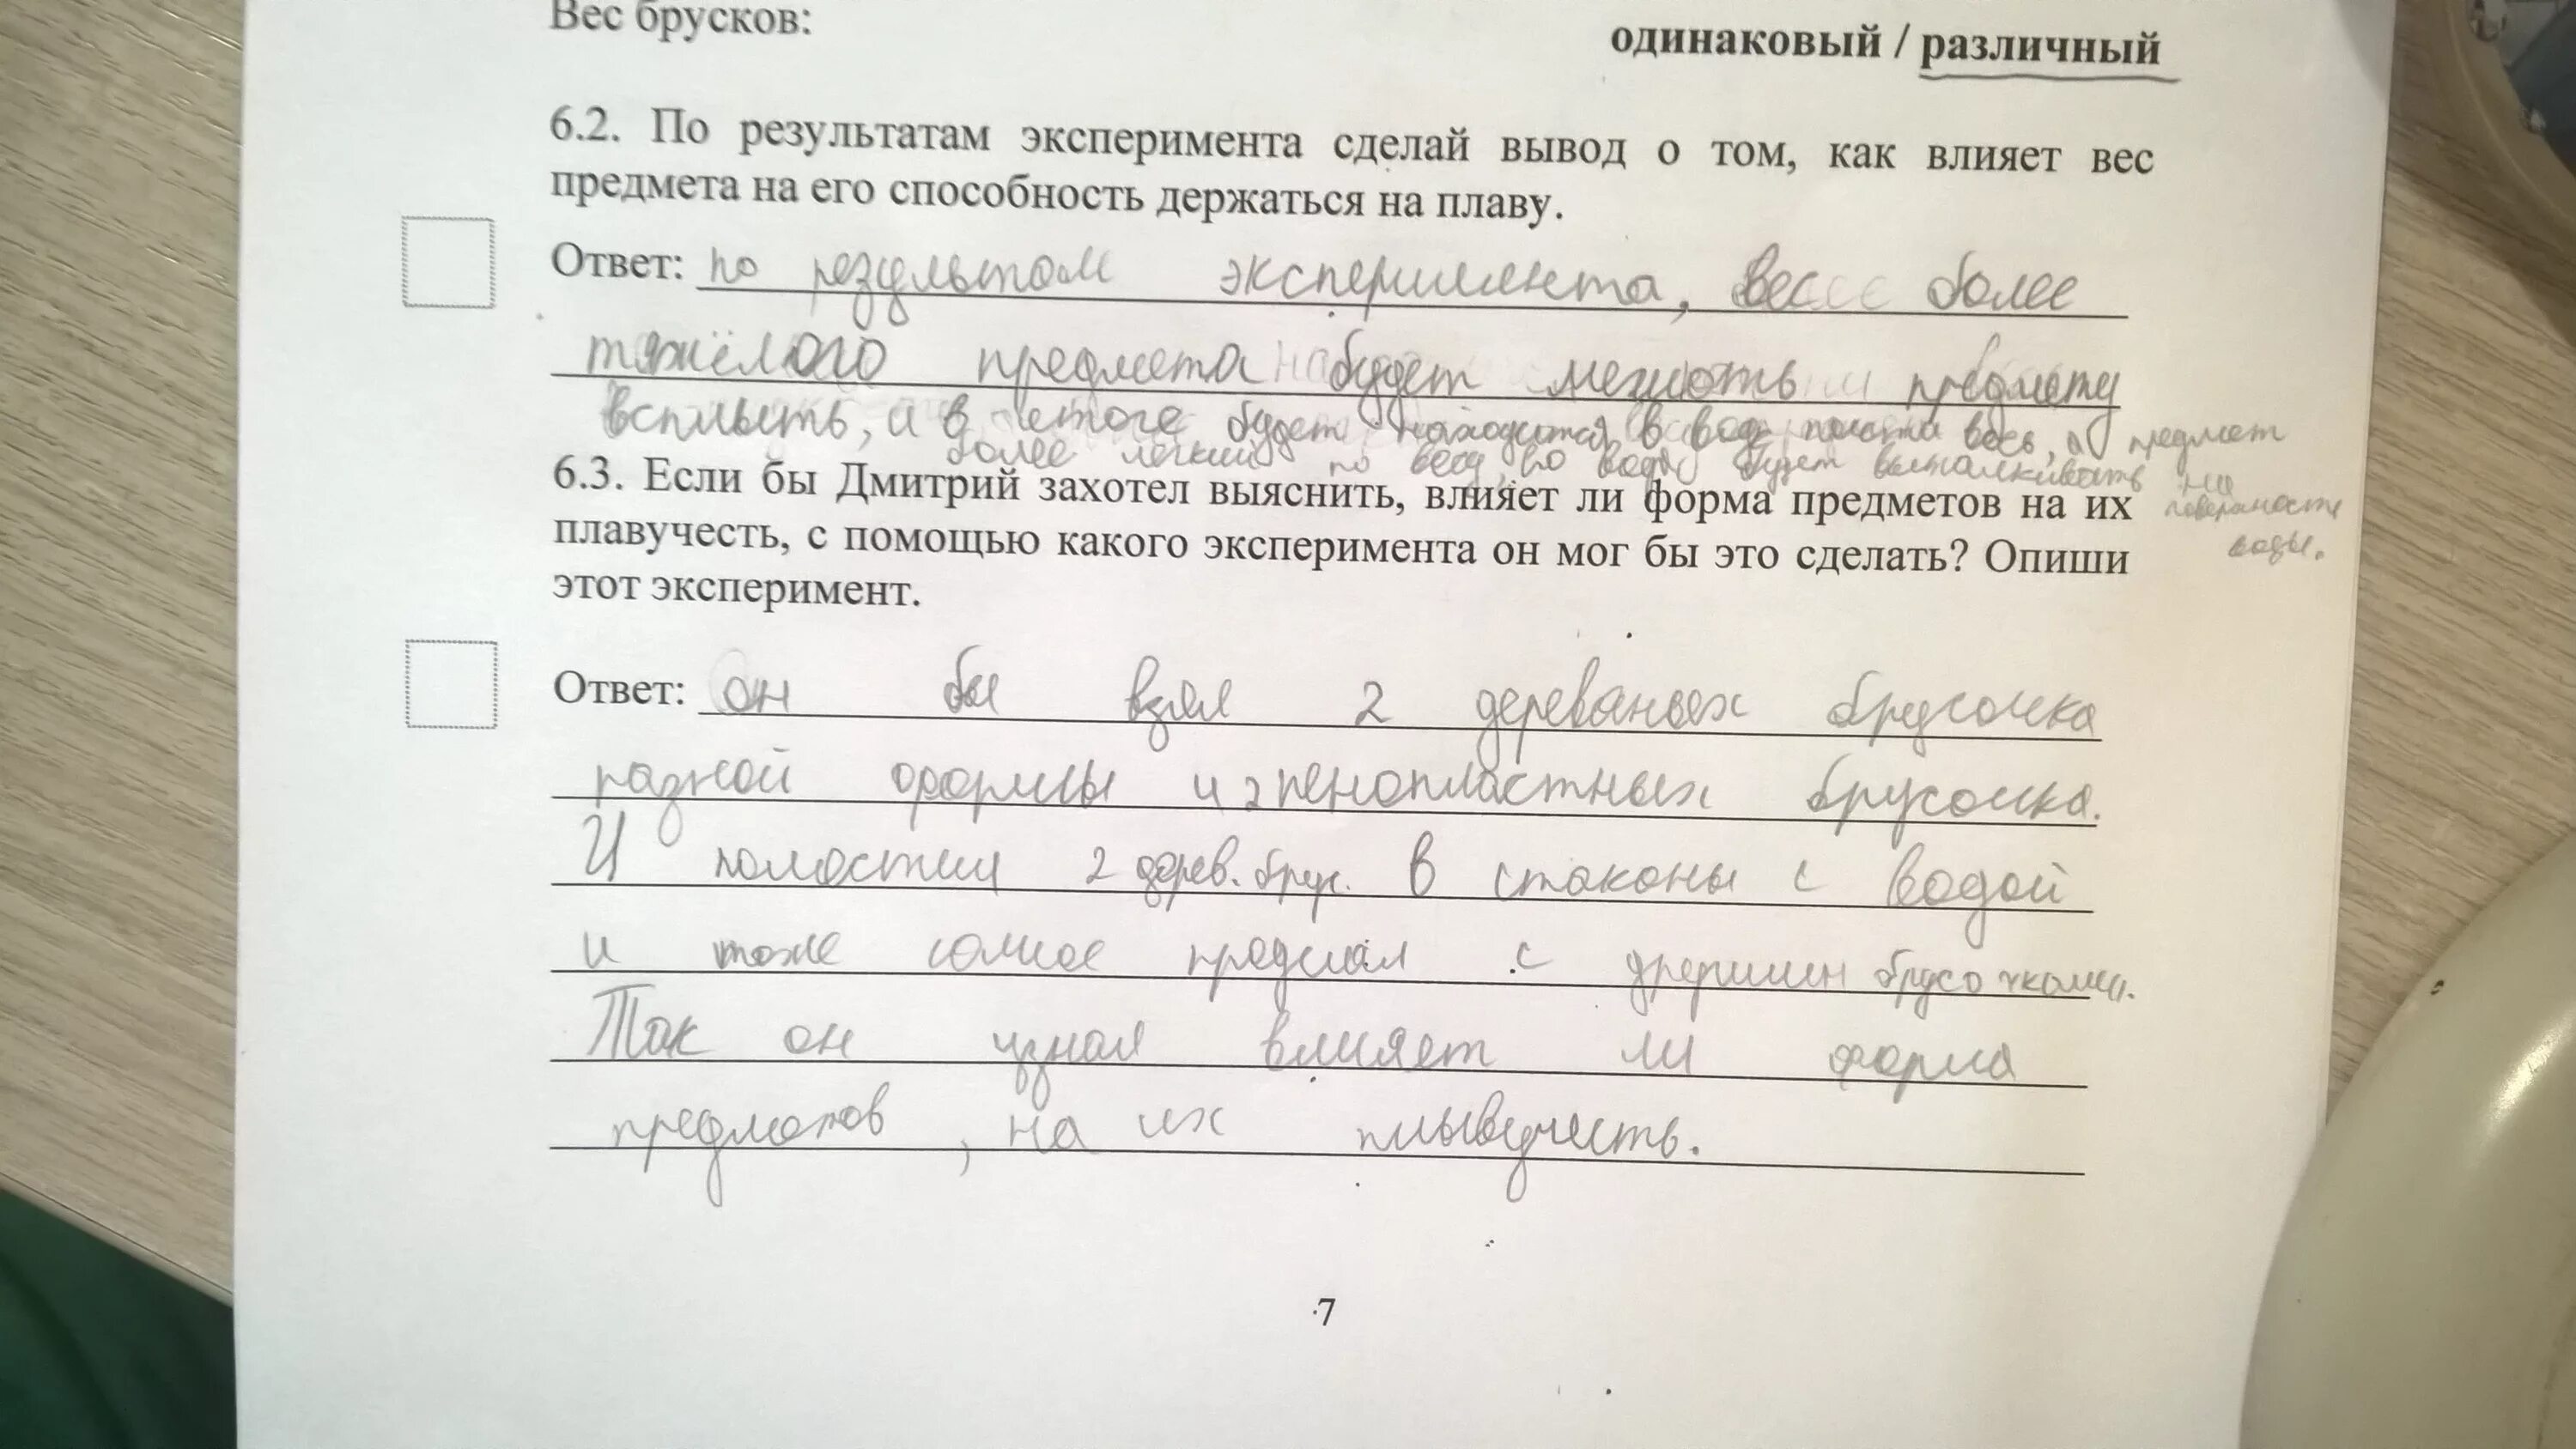 Вес брусков:
одинаковый / различный
6.2. По результатам эксперимента сделай вывод о том, как влияет вес
предмета на его способность держаться на плаву.
Ответ: по результатом эксперимента, вес более
тяжёлого предмета будет мешать предмету
всплыть, и в итоге будет находится в воде почти весь, а предмет
более легкий по весу, то вода будет выталкивать на
поверхность
воды.
6.3. Если бы Дмитрий захотел выяснить, влияет ли форма предметов на их
плавучесть, с помощью какого эксперимента он мог бы это сделать? Опиши
этот эксперимент.
Ответ: он бы взял 2 деревяных брусочка
разной формы и 2 пенопластных брусочка.
И поместил 2 дерев. брус. в стаканы с водой
и тоже самое с брусочками.
Так он узнал влияет ли форма
предметов, на их плывучесть.
7